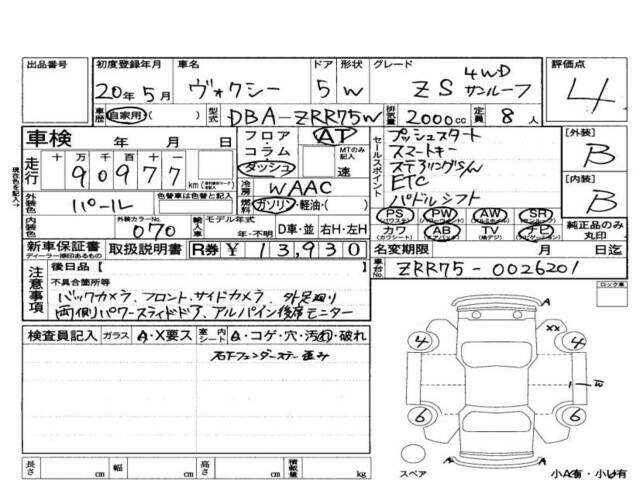 出品番号 初度登録年月 車名 ドア 形状 グレード 評価点
20年5月 ヴォクシー 5 W ZS 4WD サンルーフ 4
車歴 自家用・( ) 型式 DBA-ZRR75W 排気量 2000cc 定員 8人
車検 年 月 日 フロア・コラム・ダッシュ AT MTのみ記入 速
セールスポイント
プッシュスタート
スマートキー
ステアリングS/W
ETC
パドルシフト
[外装] B
[内装] B
純正品のみ丸印
現在色を記入→
走行 十 万 千 百 十 一
90977 km
冷房 WAAC
外装色 パール 色替車は色替と記入 燃料 ガソリン・軽油・( )
PS PW AW SR
カワ AB TV ナビ
内装色 外装カラーNo. 070 輸入車 モデル年式 年・不明 D車・並 右H・左H
新車保証書 ディーラー捺印あるもの 取扱説明書 R券 ¥13,930 名変期限 月 日迄
車台No. ZRR75-0026201
注意事項
後日品【 】
不具合箇所等
バックカメラ、フロント、サイドカメラ、外足廻り
両側パワースライドドア、アルパイン後席モニター
ロック車
検査員記入 ガラス A・X要ス 室内シート A・コゲ・穴・汚・切・破れ
右下フェンダーステー歪み
A
A
XX
4 4
1 W
6 6
スペア
小A有・小U有
長さ cm 幅 cm 高さ cm 積載量 kg